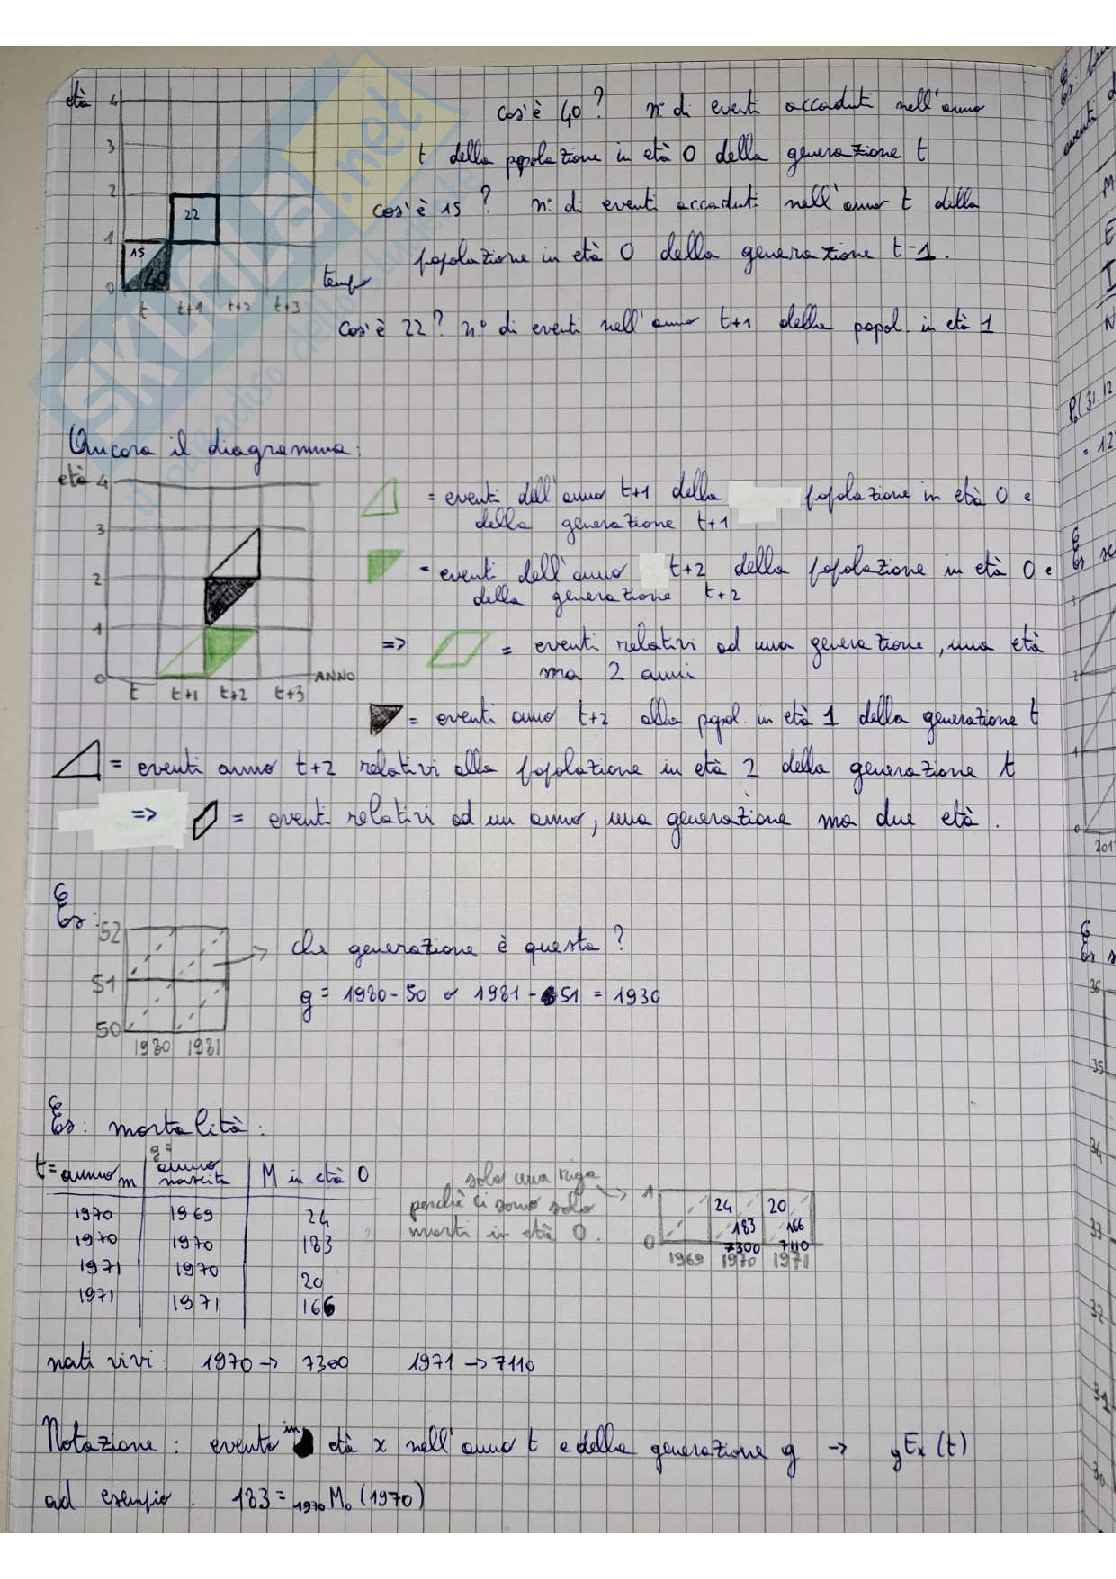 età 4
cos'è 40? n° di eventi accaduti nell'anno
3
t della popolazione in età 0 della generazione t
2
22
cos'è 15? n° di eventi accaduti nell'anno t della
1
15
popolazione in età 0 della generazione t-1.
0
40
tempo
t t+1 t+2 t+3
cos'è 22? n° di eventi nell'anno t+1 della popol. in età 1
SKUOLA.net
Ancora il diagramma:
età 4
= eventi dell'anno t+1 della popolazione in età 0 e
della generazione t+1
3
2
= eventi dell'anno t+2 della popolazione in età 0 e
della generazione t+2
1
=> = eventi relativi ad una generazione, una età
ma 2 anni
0
ANNO
t t+1 t+2 t+3
= eventi anno t+2 della popol. in età 1 della generazione t
= eventi anno t+2 relativi alla popolazione in età 2 della generazione t
=> = eventi relativi ad un anno, una generazione ma due età.
Es:
52
che generazione è questa?
51
g = 1980-50 o 1981-51 = 1930
50
1980 1981
Es: mortalità:
t=anno m g= anno nascita M in età 0
1970 1969 24
1970 1970 183
1971 1970 20
1971 1971 166
solo una riga
perchè ci sono solo
morti in età 0.
1
24 20
183 166
0
7300 7110
1969 1970 1971
nati vivi 1970 -> 7300 1971 -> 7110
Notazione: evento in età x nell'anno t e della generazione g -> gEx (t)
ad esempio 183 = 1970M0 (1970)